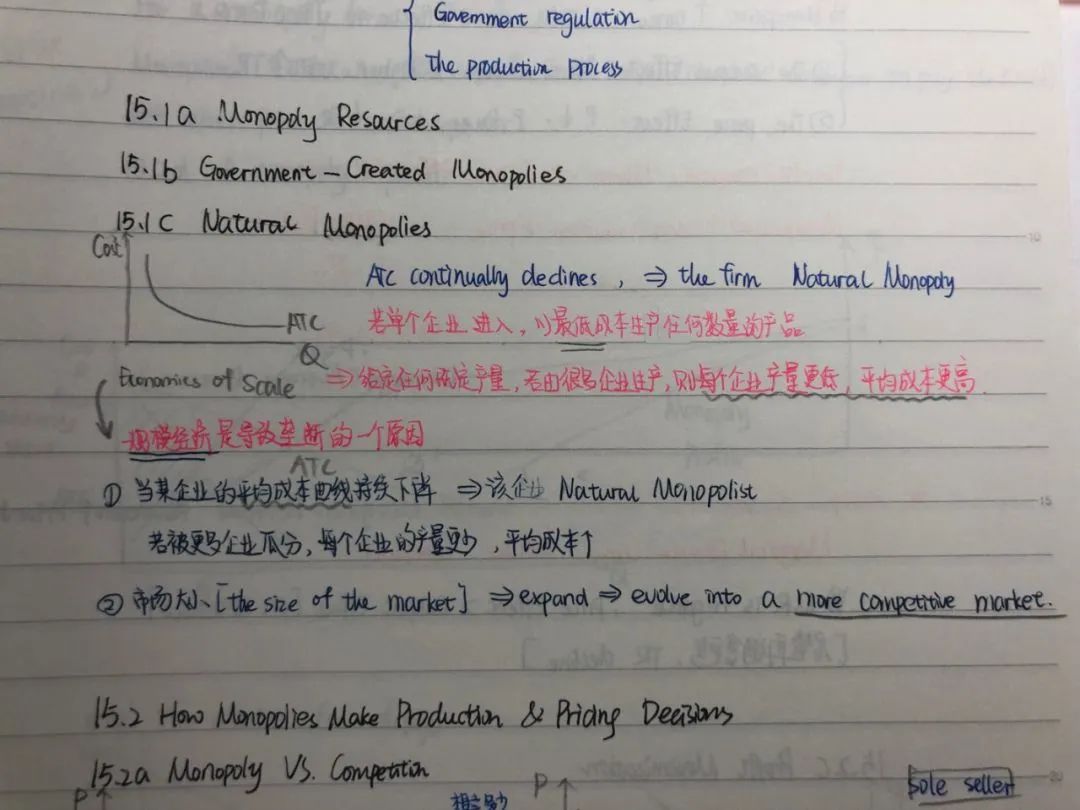 Government regulation
The production process
15.1a Monopoly Resources
15.1b Government-Created Monopolies
15.1c Natural Monopolies
Cost
ATC continually declines, ⇒ the firm Natural Monopoly
ATC
若单个企业进入,以最低成本生产任何数量的产品
Q
Economics of Scale
⇒ 给定任何既定产量,若由很多企业生产,则每个企业产量更低,平均成本更高
规模经济是导致垄断的一个原因
ATC
① 当某企业的平均成本曲线持续下降 ⇒ 该企业 Natural Monopolist
若被更多企业瓜分,每个企业的产量更少,平均成本↑
② 市场大小[the size of the market] ⇒ expand ⇒ evolve into a more competitive market.
15.2 How Monopolies Make Production & Pricing Decisions
15.2a Monopoly VS. Competition
P
P
Sole seller